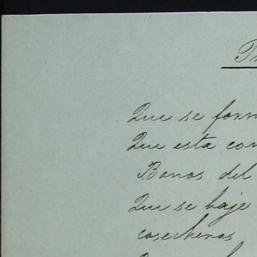 Que se form
Que esta con
Bonos del
Que se baje
cosecheros